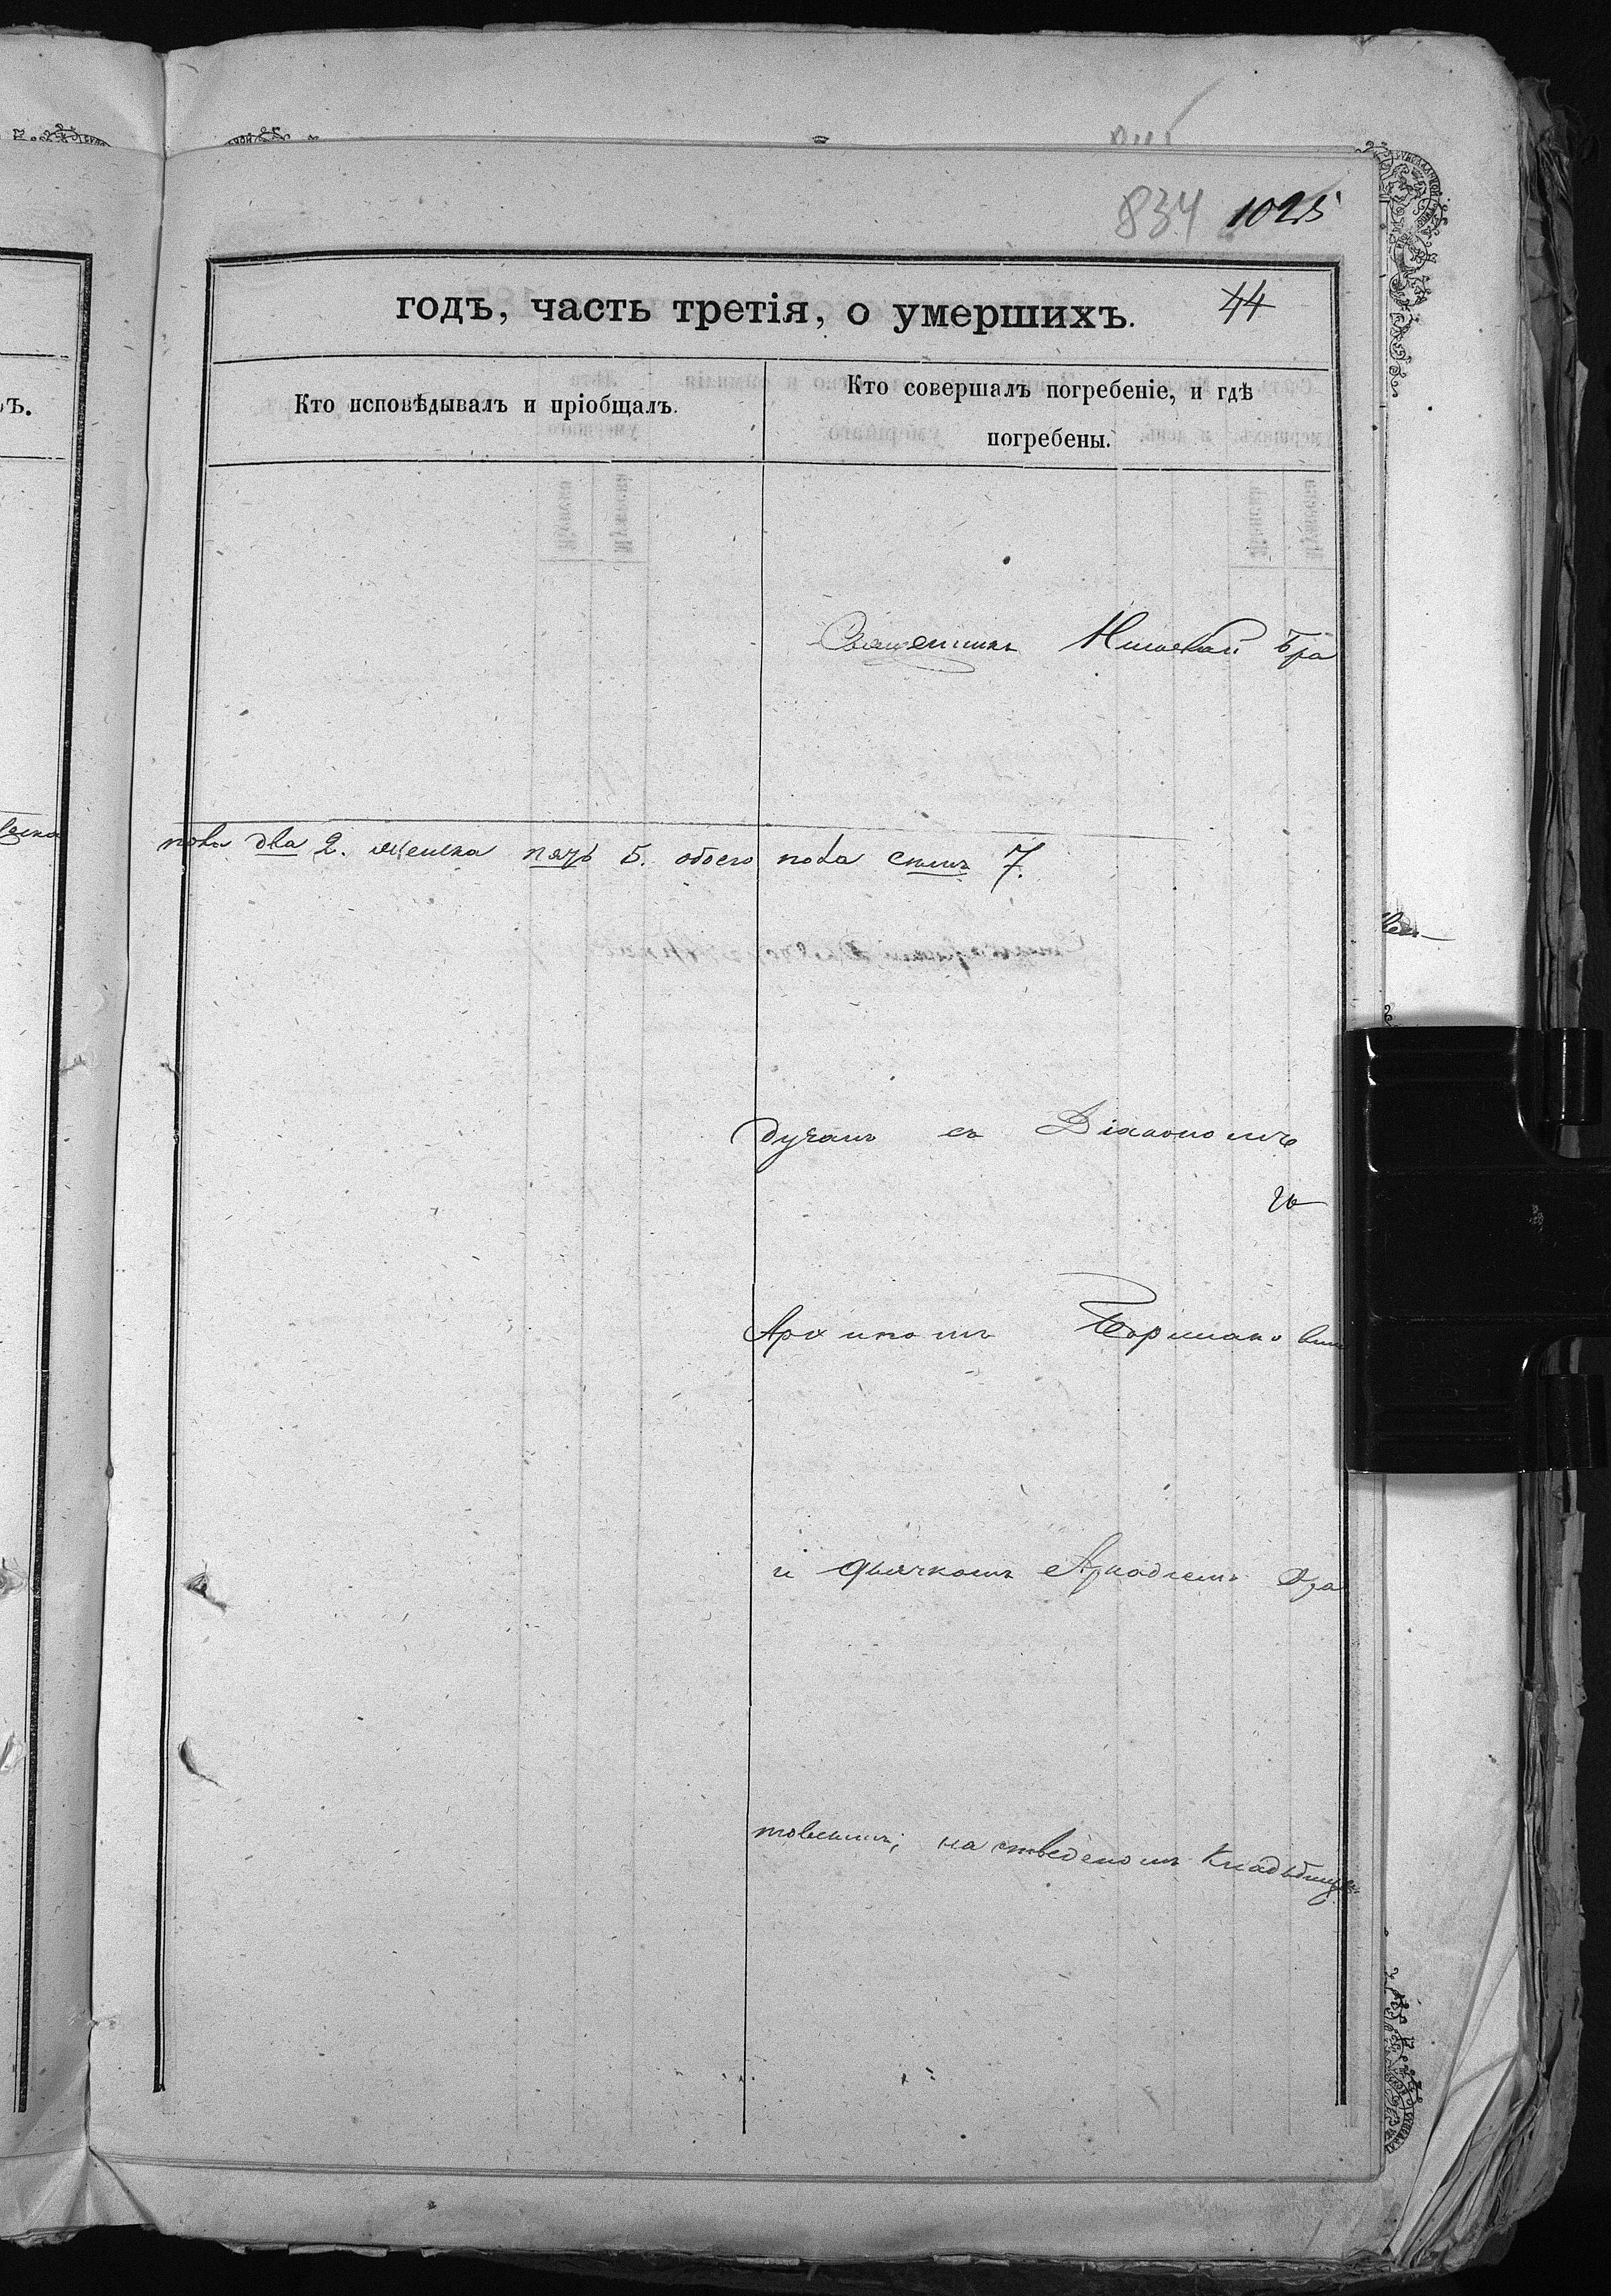 834 1025
годъ, часть третія, о умершихъ. 44
Кто исповѣдывалъ и пріобщалъ.
Кто совершалъ погребеніе, и гдѣ
погребены.
Священникъ Николай Бра
пола два 2. женска пять 5. обоего пола семь 7.
дучанъ съ Діакономъ
Архипомъ
и дьячкомъ Аркадіемъ
товскимъ; на отведеномъ кладбищѣ.